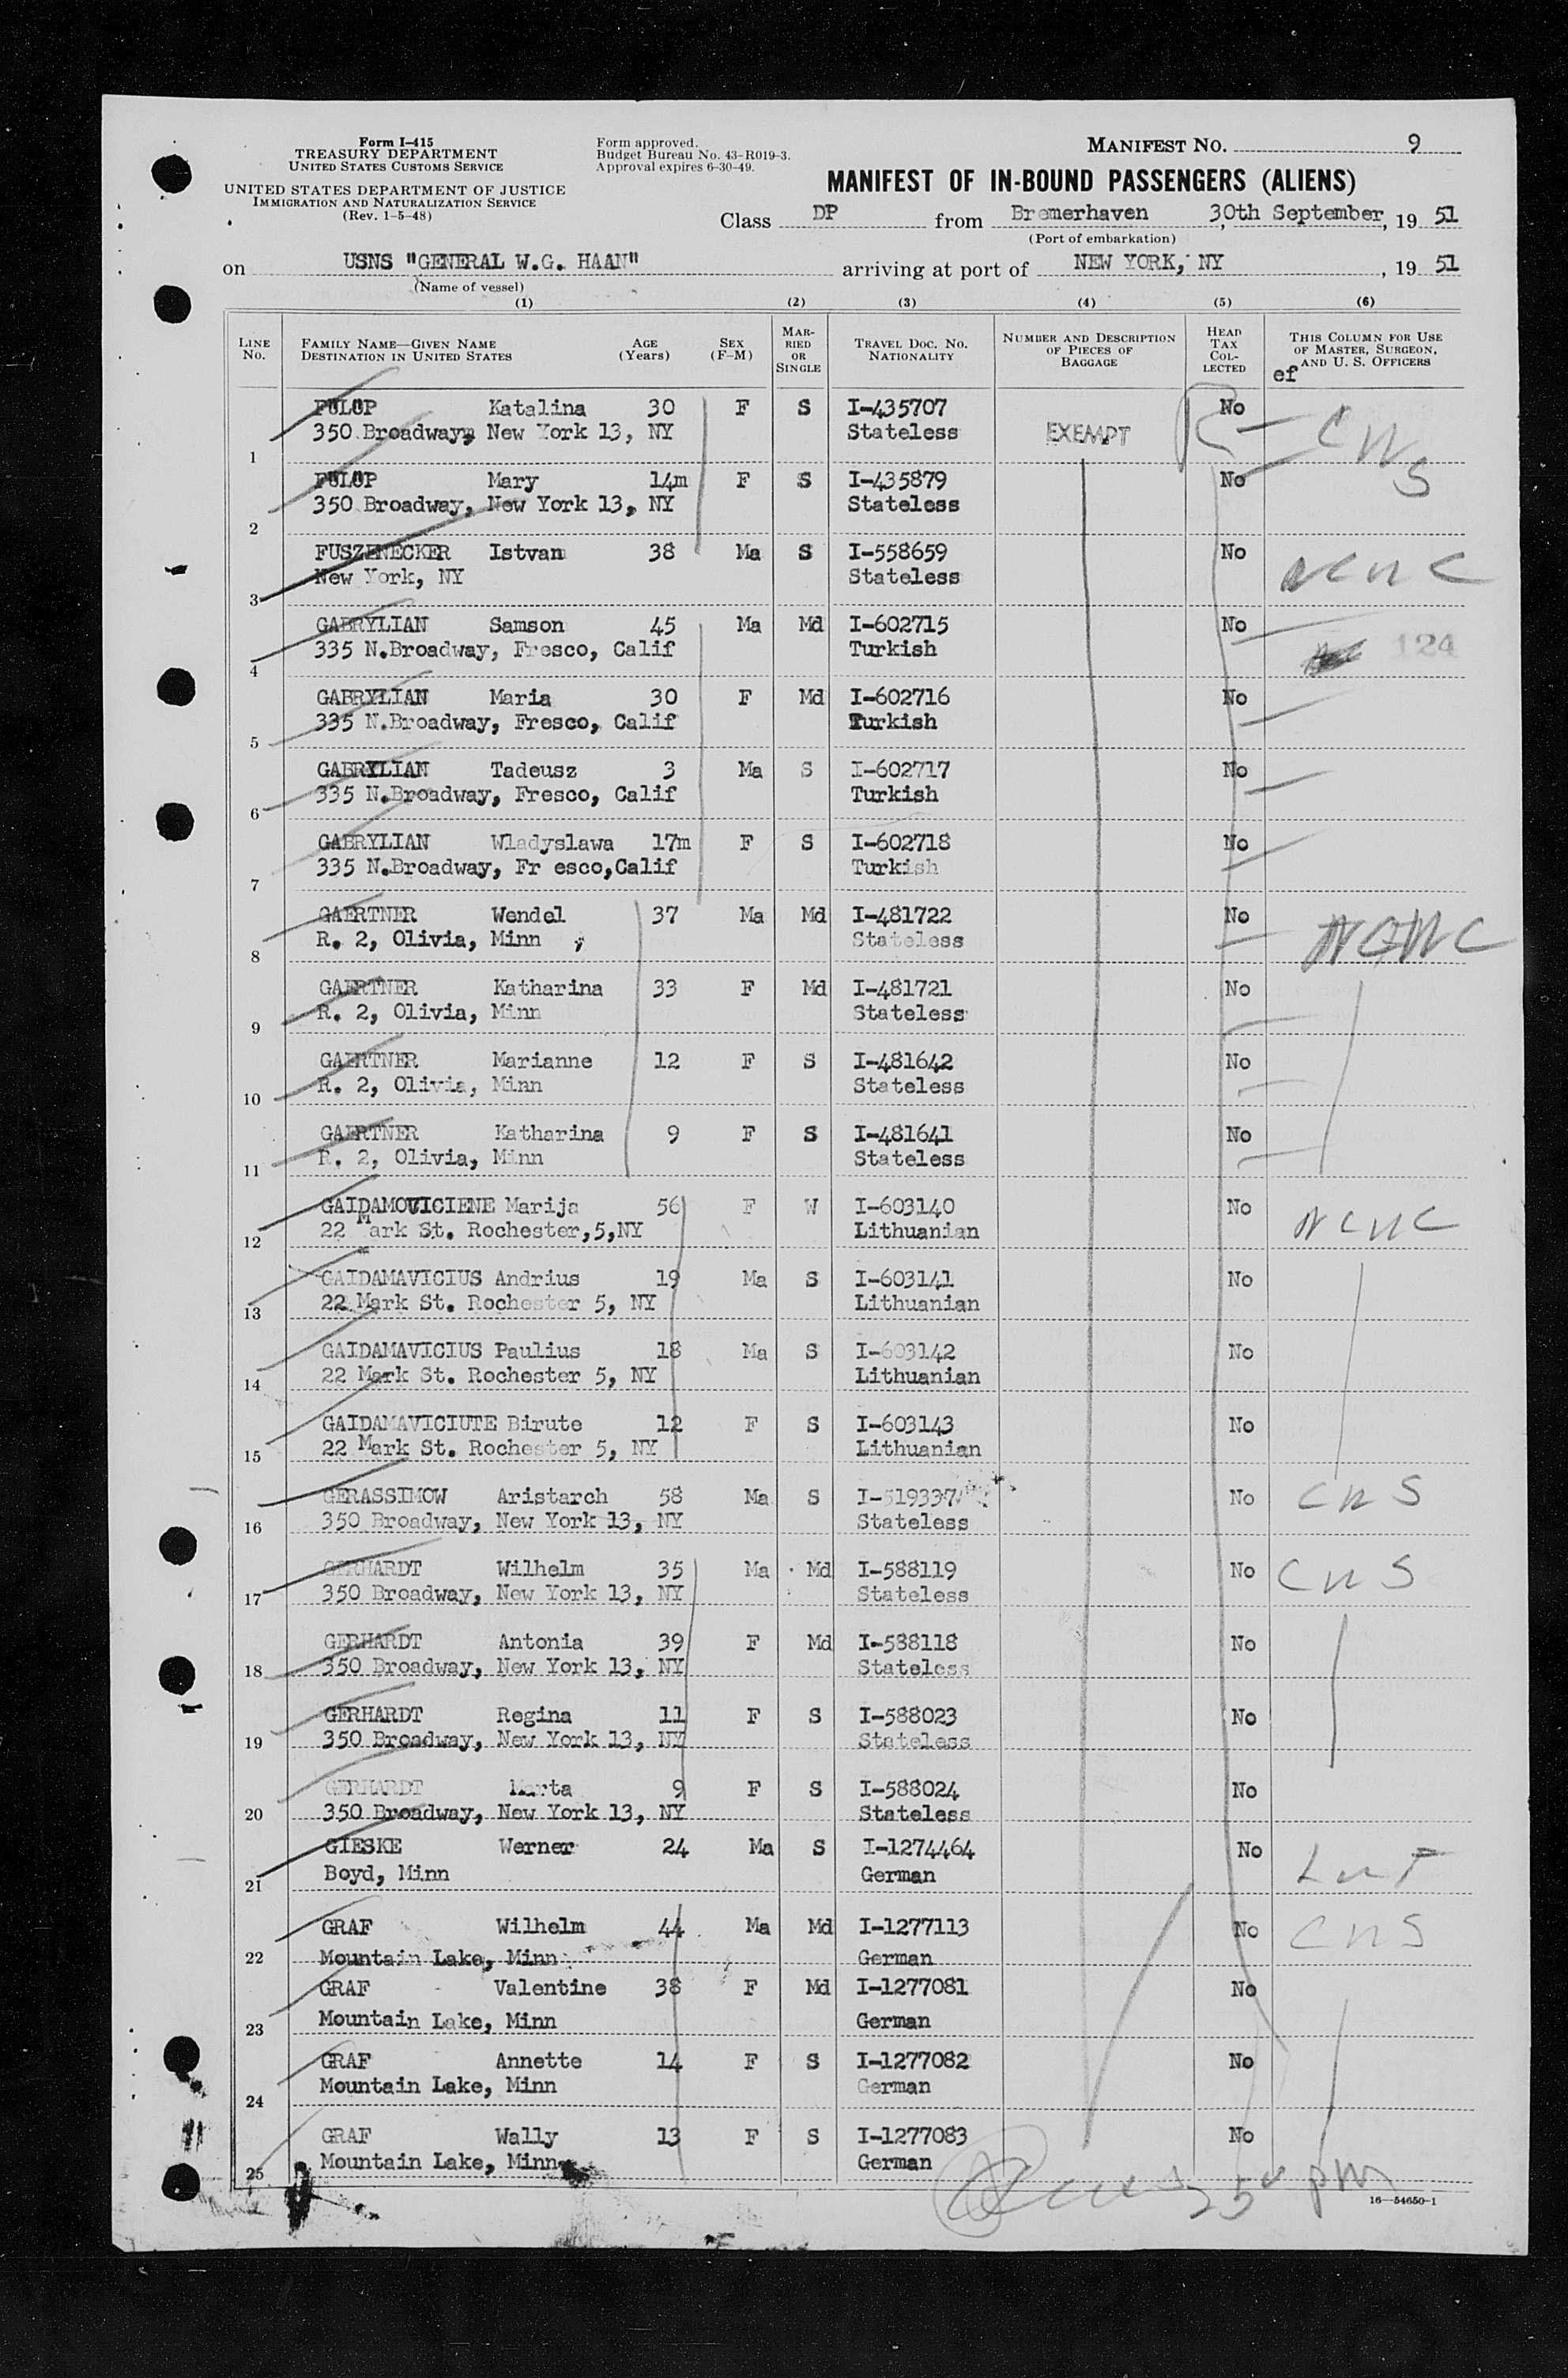 Form I-415
TREASURY DEPARTMENT
UNITED STATES CUSTOMS SERVICE
UNITED STATES DEPARTMENT OF JUSTICE
IMMIGRATION AND NATURALIZATION SERVICE
(Rev. 1-5-48)
Form approved.
Budget Bureau No. 43-R019-3.
Approval expires 6-30-49.
MANIFEST NO. 9
MANIFEST OF IN-BOUND PASSENGERS (ALIENS)
Class DP from Bremerhaven, 30th September, 19 51
(Port of embarkation)
on USNS "GENERAL W.G. HAAN" arriving at port of NEW YORK, NY, 19 51
(Name of vessel)
(1) (2) (3) (4) (5) (6)
LINE No. FAMILY NAME—GIVEN NAME DESTINATION IN UNITED STATES AGE (Years) SEX (F-M) MARRIED OR SINGLE TRAVEL DOC. NO. NATIONALITY NUMBER AND DESCRIPTION OF PIECES OF BAGGAGE HEAD TAX COLLECTED THIS COLUMN FOR USE OF MASTER, SURGEON, AND U. S. OFFICERS
ef
FULOP Katalina 30 F S I-435707 No CWS
1 350 Broadway, New York 13, NY Stateless EXEMPT
FULOP Mary 14m F S I-435879 No
2 350 Broadway, New York 13, NY Stateless
FUSZENECKER Istvan 38 Ma S I-558659 No NCWC
3 New York, NY Stateless
GABRYLIAN Samson 45 Ma Md I-602715 No
4 335 N.Broadway, Fresco, Calif Turkish 124
GABRYLIAN Maria 30 F Md I-602716 No
5 335 N.Broadway, Fresco, Calif Turkish
GABRYLIAN Tadeusz 3 Ma S I-602717 No
6 335 N.Broadway, Fresco, Calif Turkish
GABRYLIAN Wladyslawa 17m F S I-602718 No
7 335 N.Broadway, Fr esco,Calif Turkish
GAERTNER Wendel 37 Ma Md I-481722 No NCWC
8 R. 2, Olivia, Minn Stateless
GAERTNER Katharina 33 F Md I-481721 No
9 R. 2, Olivia, Minn Stateless
GAERTNER Marianne 12 F S I-481642 No
10 R. 2, Olivia, Minn Stateless
GAERTNER Katharina 9 F S I-481641 No
11 R. 2, Olivia, Minn Stateless
GAIDAMOVICIENE Marija 56 F W I-603140 No NCWC
12 22 Mark St. Rochester,5,NY Lithuanian
GAIDAMAVICIUS Andrius 19 Ma S I-603141 No
13 22 Mark St. Rochester 5, NY Lithuanian
GAIDAMAVICIUS Paulius 18 Ma S I-603142 No
14 22 Mark St. Rochester 5, NY Lithuanian
GAIDAMAVICIUTE Birute 12 F S I-603143 No
15 22 Mark St. Rochester 5, NY Lithuanian
GERASSIMOW Aristarch 58 Ma S I-519337 No CWS
16 350 Broadway, New York 13, NY Stateless
GERHARDT Wilhelm 35 Ma Md I-588119 No CWS
17 350 Broadway, New York 13, NY Stateless
GERHARDT Antonia 39 F Md I-588118 No
18 350 Broadway, New York 13, NY Stateless
GERHARDT Regina 11 F S I-588023 No
19 350 Broadway, New York 13, NY Stateless
GERHARDT Marta 9 F S I-588024 No
20 350 Broadway, New York 13, NY Stateless
GIESKE Werner 24 Ma S I-1274464 No
21 Boyd, Minn German
GRAF Wilhelm 44 Ma Md I-1277113 No CWS
22 Mountain Lake, Minn German
GRAF Valentine 38 F Md I-1277081 No
23 Mountain Lake, Minn German
GRAF Annette 14 F S I-1277082 No
24 Mountain Lake, Minn German
GRAF Wally 13 F S I-1277083 No
25 Mountain Lake, Minn German
16—54650-1